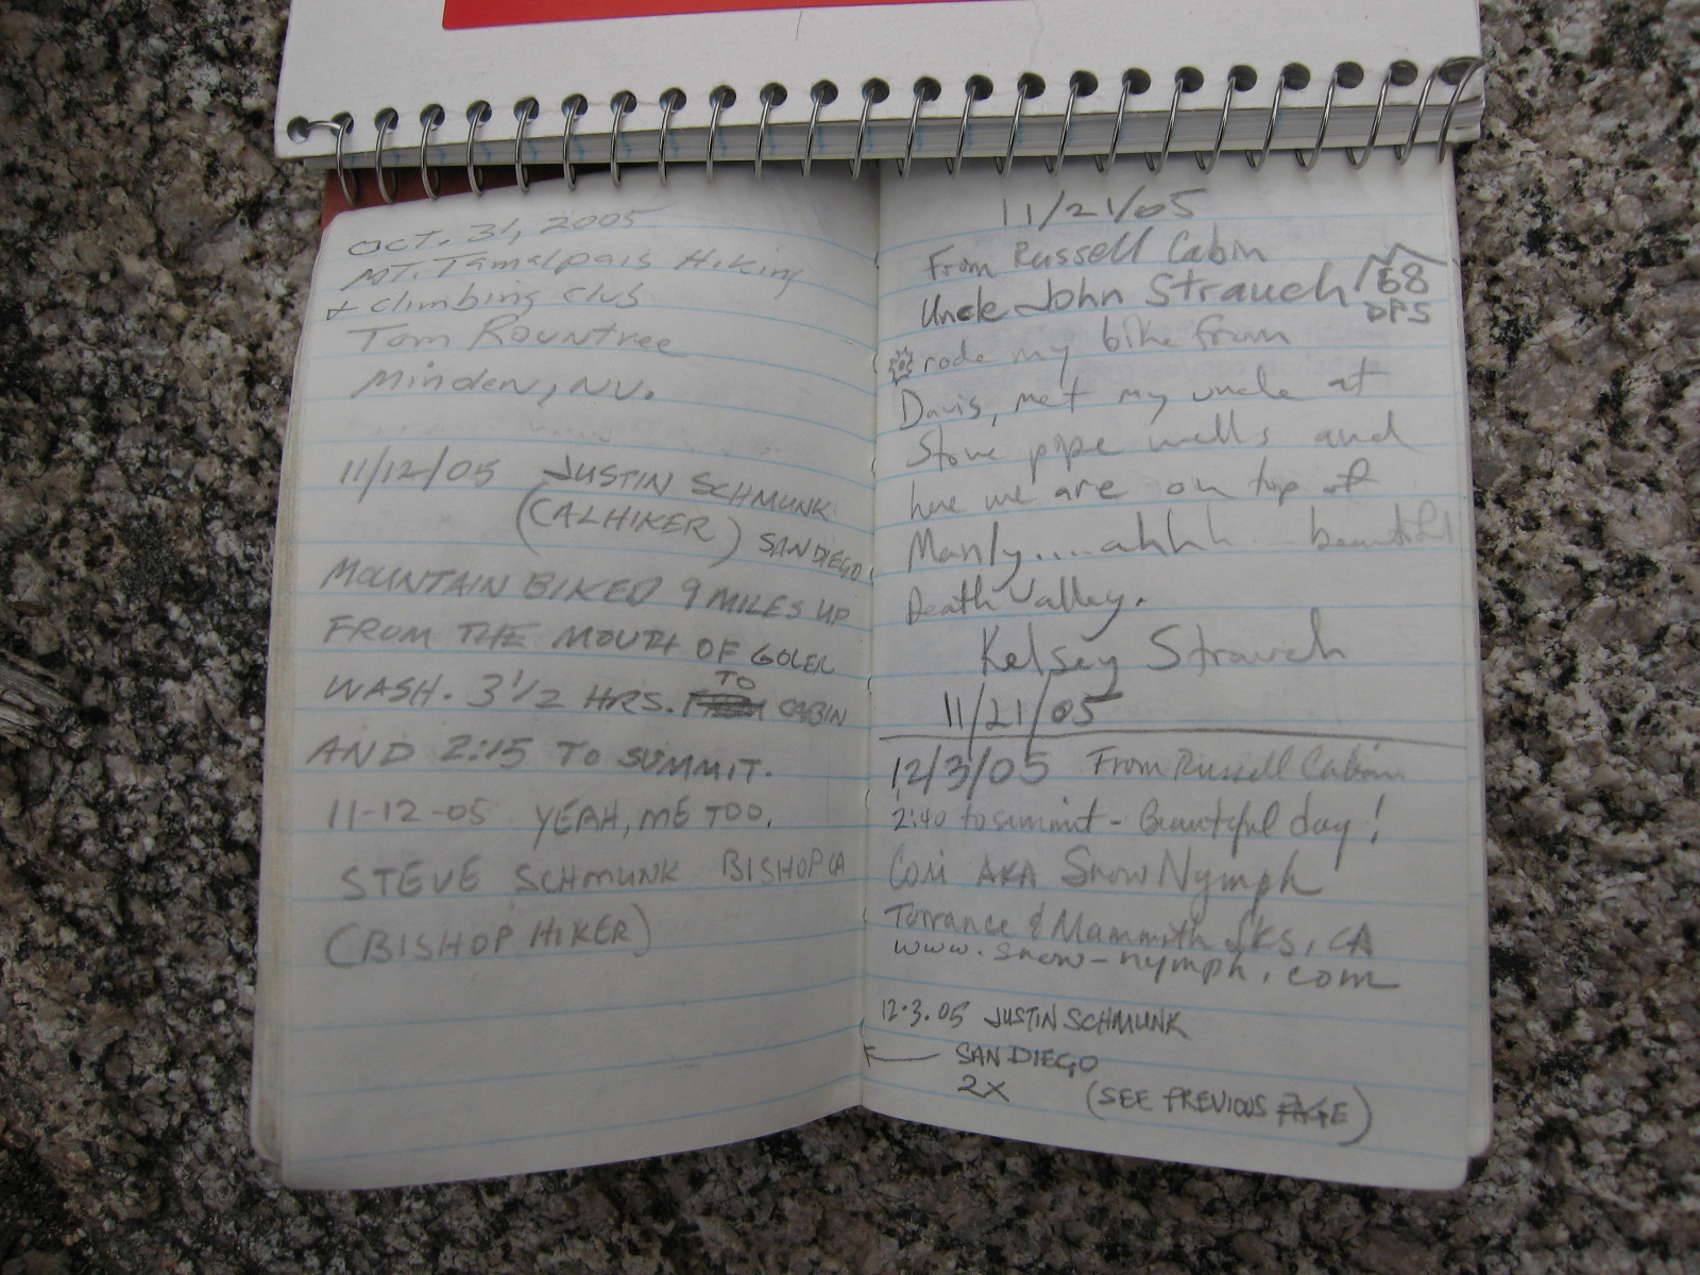 OCT. 31, 2005
MT. Tamalpais Hiking
+ climbing club
Tom Rountree
Minden, NV.
11/12/05 JUSTIN SCHMUNK
(CALHIKER) SAN DIEGO
MOUNTAIN BIKED 9 MILES UP
FROM THE MOUTH OF GOLER
WASH. 3 1/2 HRS. TO CABIN
AND 2:15 TO SUMMIT.
11-12-05 YEAH, ME TOO.
STEVE SCHMUNK BISHOP CA
(BISHOP HIKER)
11/21/05
From Russell Cabin
Uncle John Strauch 68
DPS
rode my bike from
Davis, met my uncle at
Stove pipe wells and
here we are on top of
Manly....ahhh... beautiful
Death Valley.
Kelsey Strauch
11/21/05
12/3/05 From Russell Cabin
2:40 to summit - Beautiful day!
Cori AKA Snow Nymph
Torrance & Mammoth Lks, CA
www.snow-nymph.com
12.3.05 JUSTIN SCHMUNK
SAN DIEGO
2X (SEE PREVIOUS PAGE)